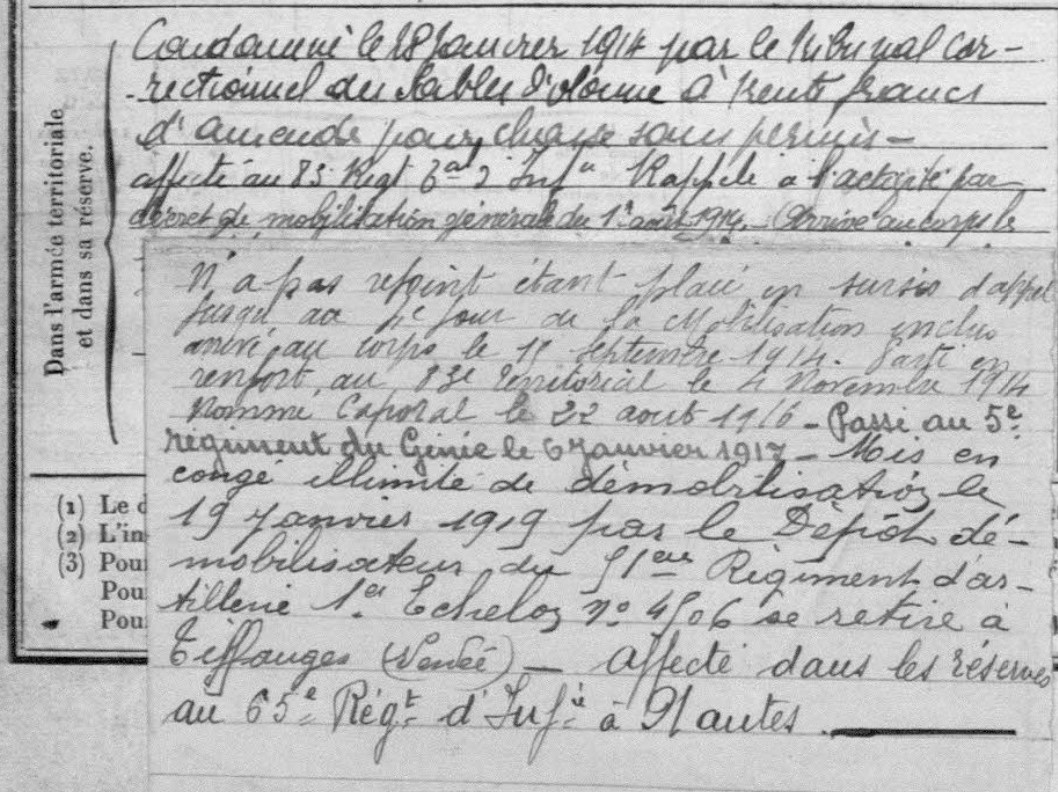 Dans l'armée territoriale
et dans sa réserve.
Condamné le 28 Janvier 1914 par le tribunal cor-
rectionnel des Sables d'Olonne à trente francs
d'amende pour chasse sans permis –
affecté au 83 Regt Bal d'Infie Rappelé à l'activité par
décret de mobilisation générale du 1er août 1914. – Arrivé au corps le
N'a pas rejoint étant placé en sursis d'appel
jusqu'au jour de la Mobilisation inclus
arrivé au corps le septembre 1914. Parti en
renfort au 83e territorial le 4 Novembre 1914
Nommé Caporal le 22 aout 1916 – Passé au 5e
régiment du Génie le 6 Janvier 1917 – Mis en
congé illimité de démobilisation le
19 Janvier 1919 par le Dépôt dé-
mobilisateur du 51eme Régiment d'ar-
tillerie 1er Echelon no 4506 se retire à
Tiffauges (Vendée) — affecté dans les réserves
au 65e Régt d'Infie à Nantes
(1) Le d
(2) L'in
(3) Pour
Pou
Pou